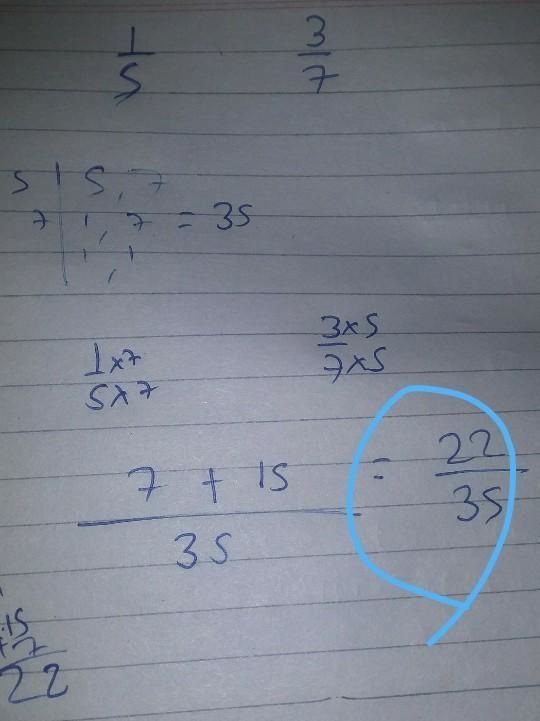 1/5 3/7
5 | 5, 7
7 | 1, 7 = 35
| 1, 1
1x7/5x7 3x5/7x5
7 + 15/35 = 22/35
15
+7
22